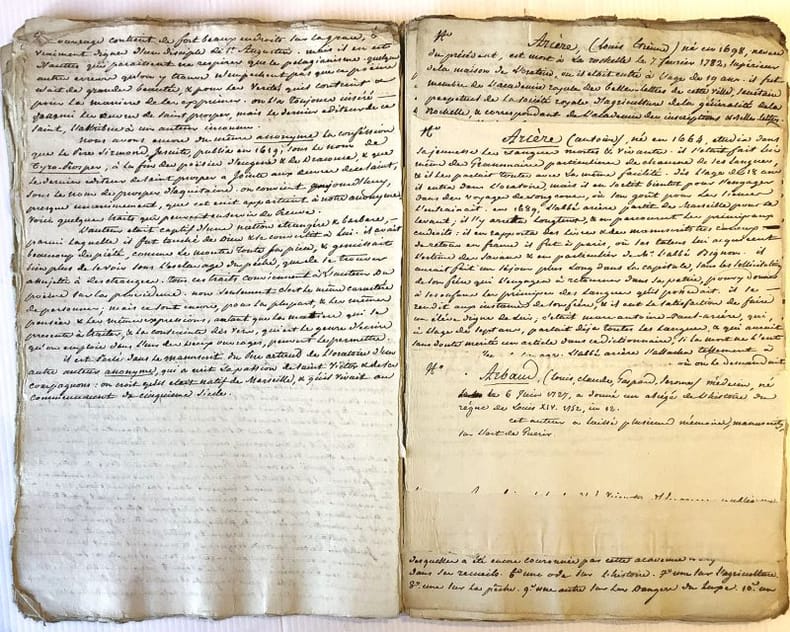 L'ouvrage contient de fort beaux endroits sur la grace, &
vraiment dignes d'un disciple de St. Augustin. mais il en est
d'autres qui paraissent ne respirer que le pelagianisme. quelque
autres erreurs qu'on y trouve n'empechent pas que ce poeme
n'ait de grandes beautés, & par les verités qu'il contient &
par la maniere de les exprimer. on l'a toujours inséré
parmi les œuvres de saint prosper, mais le dernier editeur de ce
saint, l'attribue à un auteur inconnu.
Nous avons encore du même anonyme la confession
que le Pere Sirmond, jesuite, publia en 1619, sous le nom de
tyro-prosper, à la fin des poésies d'eugene & de Draconce, & que
le dernier editeur de saint prosper a jointe aux œuvres de ce saint,
sous le nom de prosper d'aquitaine. on convient aujourd'huy,
presque unanimement, que cet ecrit appartient à notre anonyme.
voici quelques traits qui peuvent en servir de preuve.
L'auteur etait captif d'une nation etrangere & barbare,
parmi laquelle il fut touché de Dieu & se convertit à Lui. il avait
beaucoup de pieté, comme le montre toute sa piece, & gemissait
bien plus de se voir sous l'esclavage du peché, que de se trouver
assujetti à des etrangers. tous ces traits conviennent à l'auteur du
poeme sur la providence. non seulement c'est le même caractere
de personne; mais ce sont encore, pour la plupart, & les mêmes
pensées & les mêmes expressions, autant que la matiere qui se
presente à traiter, & la contrainte des vers, qui est le genre d'ecrire
qu'on employe dans l'un des deux ouvrages, peuvent le permettre.
il est parlé dans le manuscrit du Pere arteaud de l'oratoire d'un
autre auteur anonyme, qui a ecrit la passion de saint Victor & de ses
compagnons: on croit qu'il etait natif de Marseille, & qu'il vivait au
commencement du cinquieme siecle.
Arière, (Louis Etienne) né en 1698, neveu
du président, est mort à La rochelle le 7 février 1782, superieur
de la maison de l'oratoire, ou il etait entré à l'age de 19 ans. il fut
membre de l'academie royale des Belles-lettres de cette ville, secretaire
perpetuel de la societé royale d'agriculture de la généralité de la
Rochelle, & correspondant de l'academie des inscriptions & Belles-lettres
Arière (antoine), né en 1664, etudia dans
sa jeunesse les langues mortes & vivantes. il s'etait fait lui
même des Grammaires particulieres de chacune de ces langues,
& il les parlait toutes avec la même facilité. dès l'age de 18 ans
il entra dans l'oratoire, mais il en sortit bientot pour s'engager
dans des voyages de long cours, ou son gout pour les sciences
l'entrainait. en 1689, l'abbé arière partit de Marseille pour le
Levant; il s'y arreta longtems, & en parcourut les principaux
endroits: il en rapporta des livres & des manuscrits
de retour en france il fut à paris, où ses talens lui acquirent
l'estime des savans & en particulier de Mr. l'abbé Bignon. il
aurait fait un séjour plus long dans la capitale, sans les sollicitations
de son frère qui l'engagea à retourner dans sa patrie, pour y donner
à ses neveux les principes des langues qu'il possedait. il se
rendit aux instances de son frère, & il eut la satisfaction de faire
un élève digne de lui, c'etait marc-antoine-david-arière, qui,
à l'age de sept ans, parlait deja toutes les langues, & qui aurait
sans doute merité un article dans ce dictionnaire, si la mort ne l'eut
l'abbé arière s'attacha tellement à
où on le demandait
Arbaud, (Louis, claude, Gaspard, jerome) medecin, né
le 6 juin 1727, a donné un abregé de l'histoire du
règne de Louis XIV. 1752, in 12.
cet auteur a laissé plusieurs mémoires manuscrits,
sur l'art de Guerir
desquelles a été encore couronnée par cette academie
dans ses recueils. 6º une ode sur l'histoire. 7º une sur l'agriculture.
8º une sur la pêche. 9º une autre sur les Dangers du Luxe. 10º un